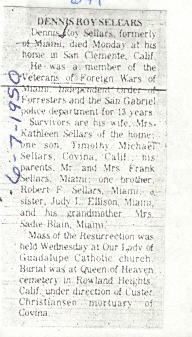 DENNIS ROY SELLARS
Dennis Roy Sellars, formerly
of Miami, died Monday at his
home in San Clemente, Calif.
He was a member of the
Veterans of Foreign Wars of
Miami, Independent Order of
Forresters and the San Gabriel
police department for 13 years.
Survivors are his wife, Mrs.
Kathleen Sellars of the home;
one son, Timothy Michael
Sellars, Covina, Calif.; his
parents, Mr. and Mrs. Frank
Sellars, Miami; one brother,
Robert F. Sellars, Miami; a
sister, Judy I. Ellison, Miami,
and his grandmother, Mrs.
Sadie Blain, Miami.
Mass of the Resurrection was
held Wednesday at Our Lady of
Guadalupe Catholic church.
Burial was at Queen of Heaven
cemetery in Rowland Heights,
Calif. under direction of Custer
Christiansen mortuary of
Covina.